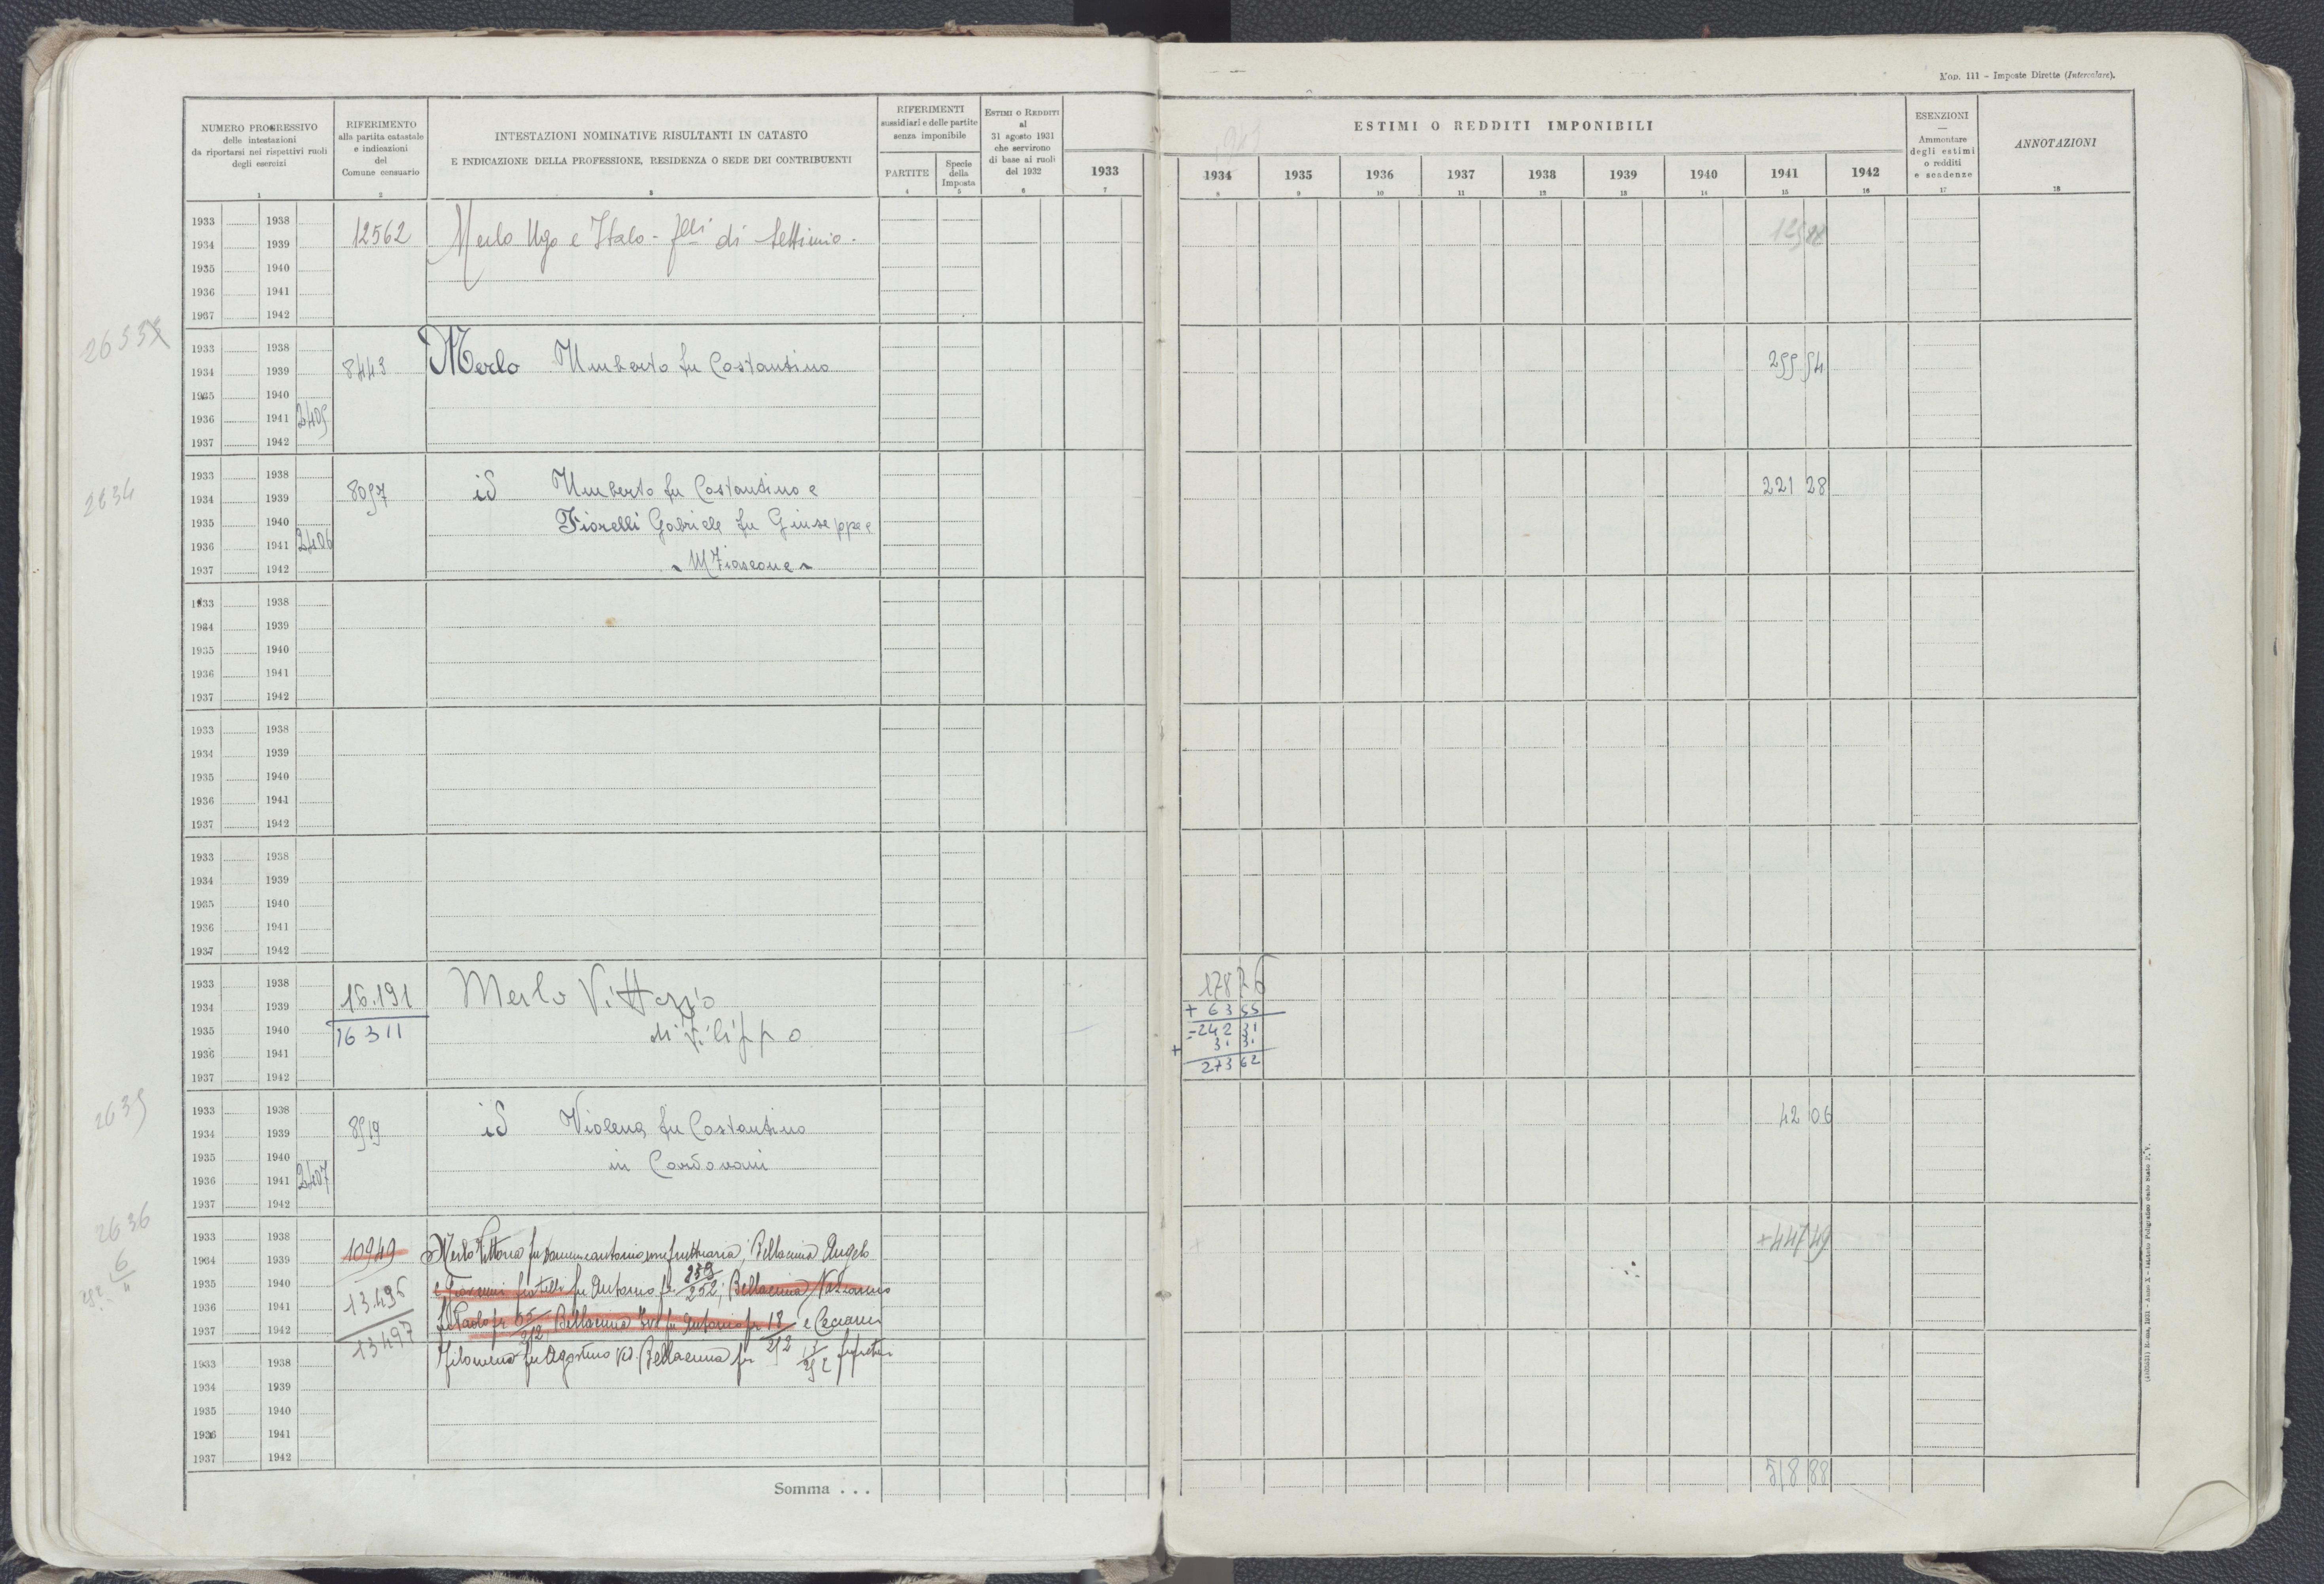 Mod. 111 – Imposte Dirette (Intercalare).
NUMERO PROGRESSIVO
delle intestazioni
da riportarsi nei rispettivi ruoli
degli esercizi
RIFERIMENTO
alla partita catastale
e indicazioni
del
Comune censuario
INTESTAZIONI NOMINATIVE RISULTANTI IN CATASTO
E INDICAZIONE DELLA PROFESSIONE, RESIDENZA O SEDE DEI CONTRIBUENTI
RIFERIMENTI
sussidiari e delle partite
senza imponibile
PARTITE
Specie
della
Imposta
ESTIMI O REDDITI
al
31 agosto 1931
che servirono
di base ai ruoli
del 1932
ESTIMI O REDDITI IMPONIBILI
1933 1934 1935 1936 1937 1938 1939 1940 1941 1942
ESENZIONI
—
Ammontare
degli estimi
o redditi
e scadenze
ANNOTAZIONI
1 2 3 4 5 6 7 8 9 10 11 12 13 14 15 16 17 18
1933 1938
1934 1939 12562 Merlo Ugo e Italo - flli di Settimio.
1935 1940
1936 1941
1937 1942
1933 1938
1934 1939 8443 Merlo Umberto fu Costantino 255 54
1935 1940
1936 1941 2405
1937 1942
2634
1933 1938
1934 1939 8057 id Umberto fu Costantino e 221 28
1935 1940 Fiorelli Gabriele fu Giuseppe e
1936 1941 2406
1937 1942 M Fiascone
1933 1938
1934 1939
1935 1940
1936 1941
1937 1942
1933 1938
1934 1939
1935 1940
1936 1941
1937 1942
1933 1938
1934 1939
1935 1940
1936 1941
1937 1942
1933 1938 178 76
1934 1939 16.191 Merlo Vittorio + 63 55
1935 1940 16311 di Filippo = 242 31
1936 1941 + 31 31
1937 1942 273 62
2635
1933 1938 42 06
1934 1939 8519 id Violena fu Costantino
1935 1940 in Cordovani
1936 1941 2407
1937 1942
2636
1933 1938 + 447 49
1934 1939 10949 Merlo Vittoria fu usufruttuaria; Bellacima Angelo
1935 1940 13.496 e Giovanni fratelli fu Antonio fr 252; Bellacima Nazzareno
1936 1941 fu Paolo fr Bellacima fu Antonio fr 18 e
1937 1942 13497
1933 1938 Filomena fu Agostino Ved Bellacima fr
1934 1939
1935 1940
1936 1941
1937 1942
Somma . . . 518 88